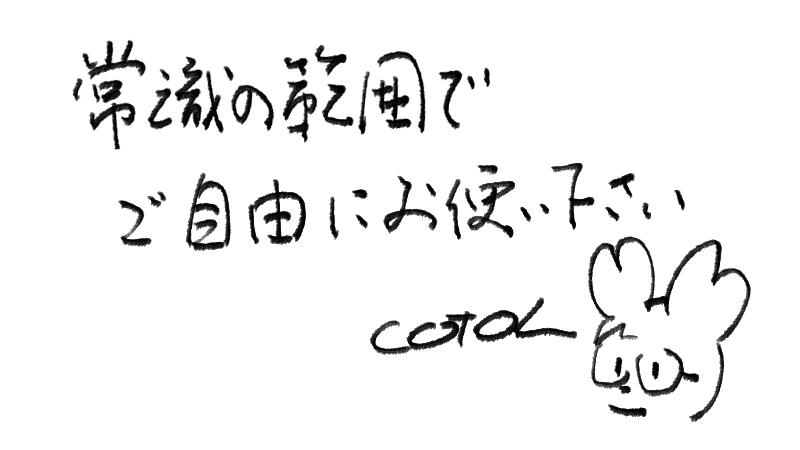 常識の範囲で
ご自由にお使い下さい
COTOL